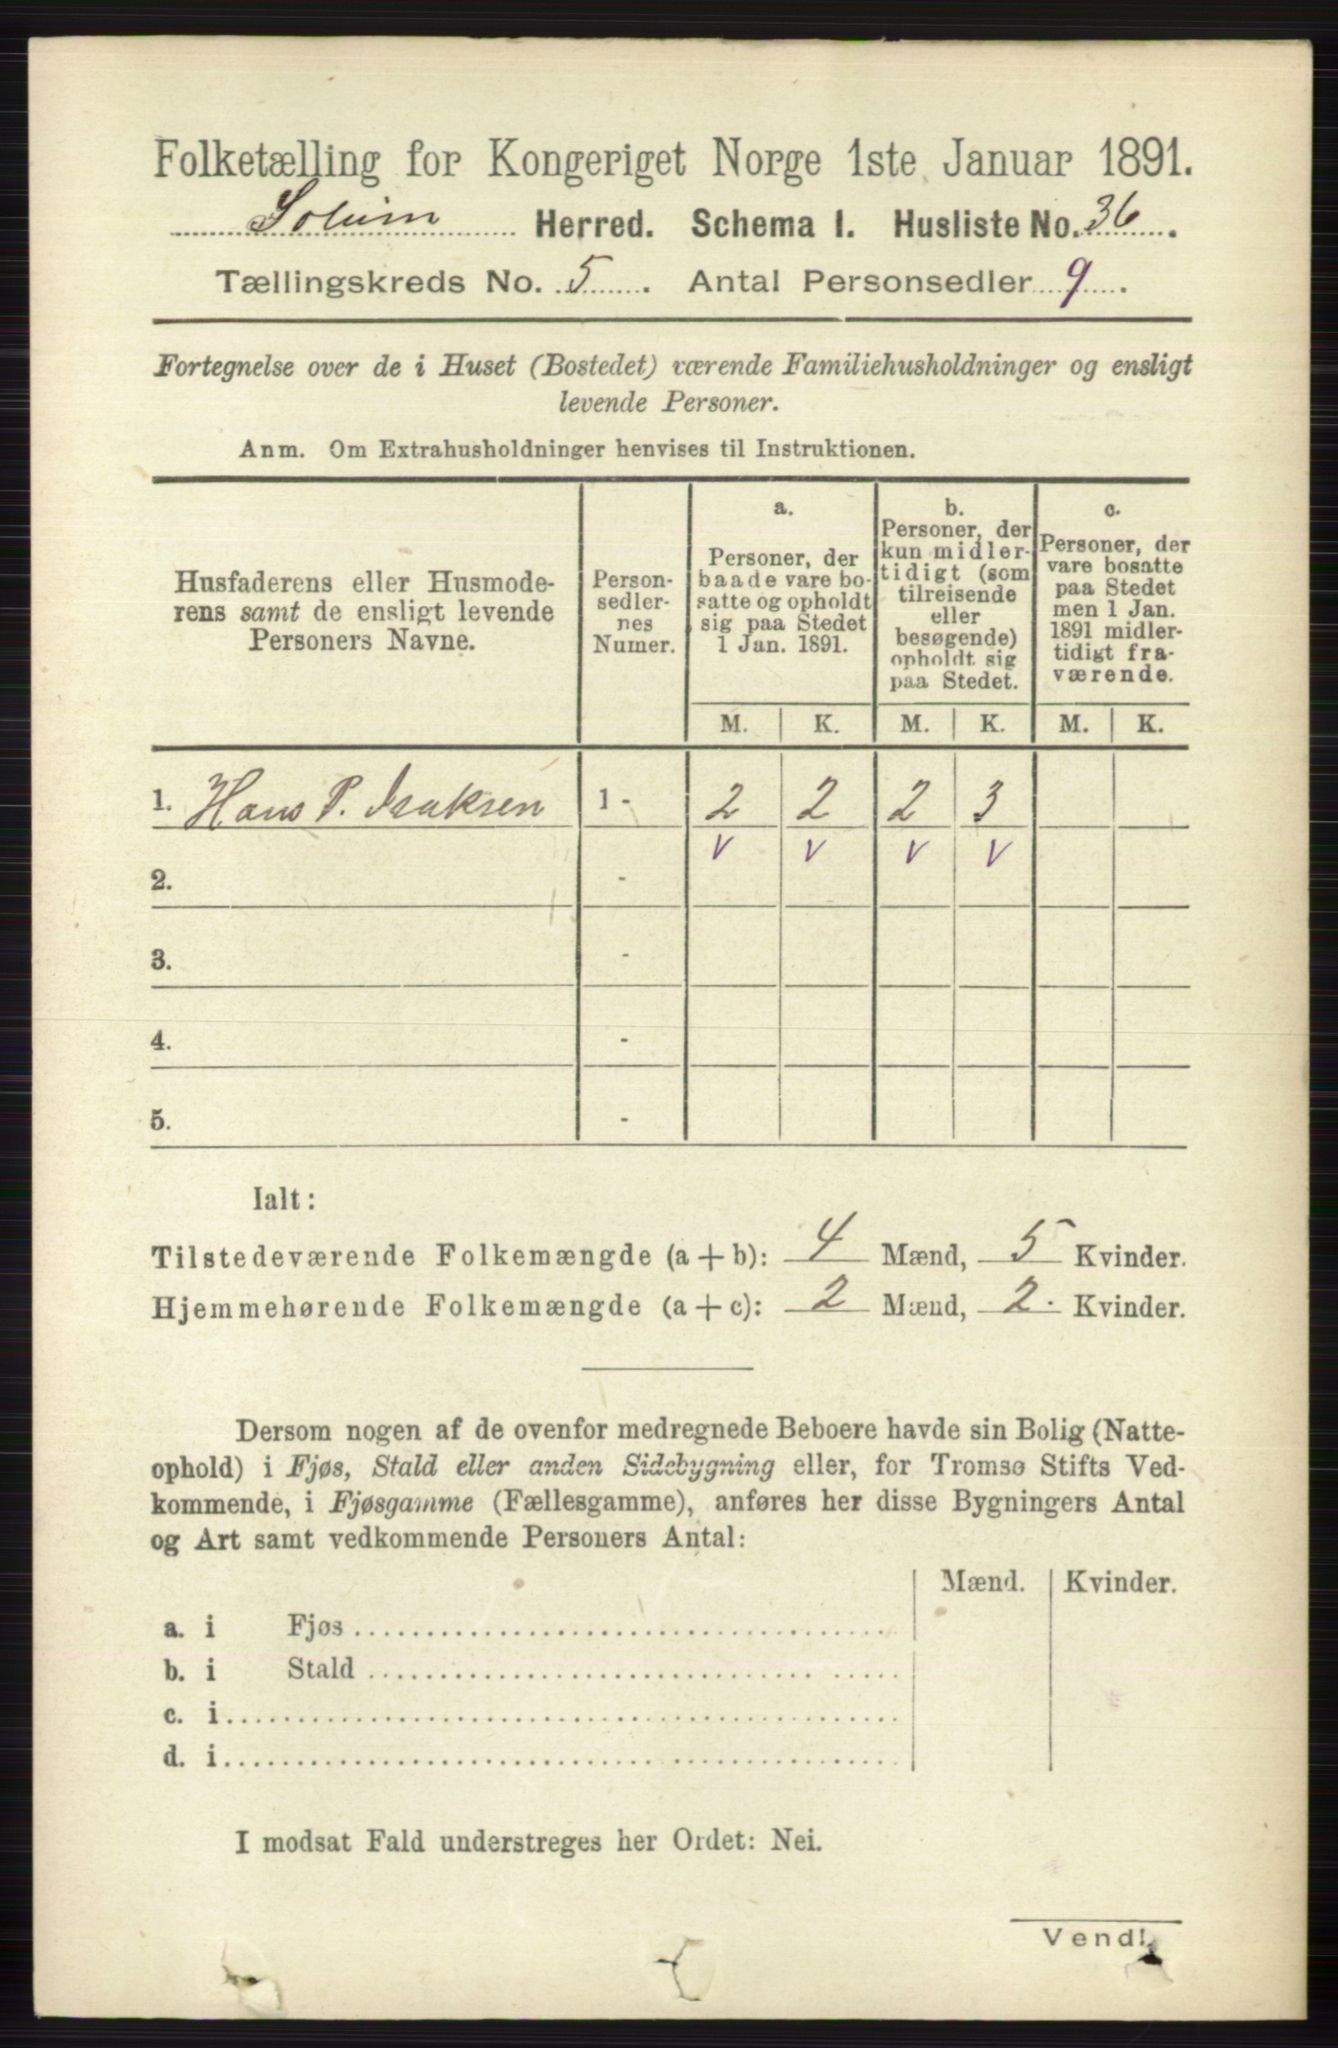 Folketælling for Kongeriget Norge 1ste Januar 1891.
Solum Herred. Schema I. Husliste No. 36.
Tællingskreds No. 5. Antal Personsedler 9.
Fortegnelse over de i Huset (Bostedet) værende Familiehusholdninger og ensligt
levende Personer.
Anm. Om Extrahusholdninger henvises til Instruktionen.
Husfaderens eller Husmode-
rens samt de ensligt levende
Personers Navne.
Person-
sedler-
nes
Numer.
a.
Personer, der
baade vare bo-
satte og opholdt
sig paa Stedet
1 Jan. 1891.
b.
Personer, der
kun midler-
tidigt (som
tilreisende
eller
besøgende)
opholdt sig
paa Stedet.
c.
Personer, der
vare bosatte
paa Stedet
men 1 Jan.
1891 midler-
tidigt fra-
værende.
M. K. M. K. M. K.
1. Hans P. Isaksen 1 - 2 2 2 3
v v v v
2. -
3. -
4. -
5. -
Ialt:
Tilstedeværende Folkemængde (a + b): 4 Mænd, 5 Kvinder.
Hjemmehørende Folkemængde (a + c): 2 Mænd, 2. Kvinder.
Dersom nogen af de ovenfor medregnede Beboere havde sin Bolig (Natte-
ophold) i Fjøs, Stald eller anden Sidebygning eller, for Tromsø Stifts Ved-
kommende, i Fjøsgamme (Fællesgamme), anføres her disse Bygningers Antal
og Art samt vedkommende Personers Antal:
Mænd. Kvinder.
a. i Fjøs
b. i Stald
c. i
d. i
I modsat Fald understreges her Ordet: Nei.
Vend!